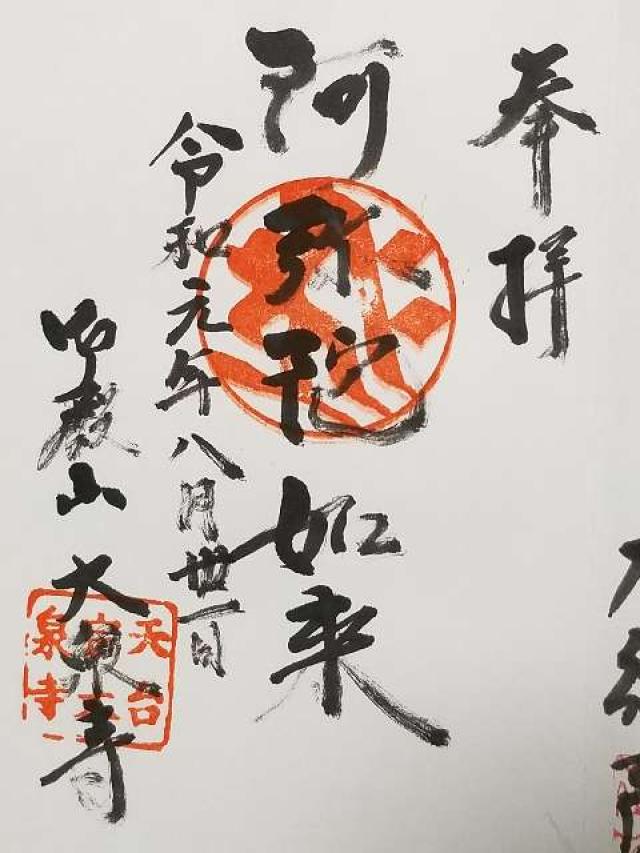 奉拝
阿弥陀如来
令和元年八月卅一日
山 大泉寺
天台
宗大
泉寺